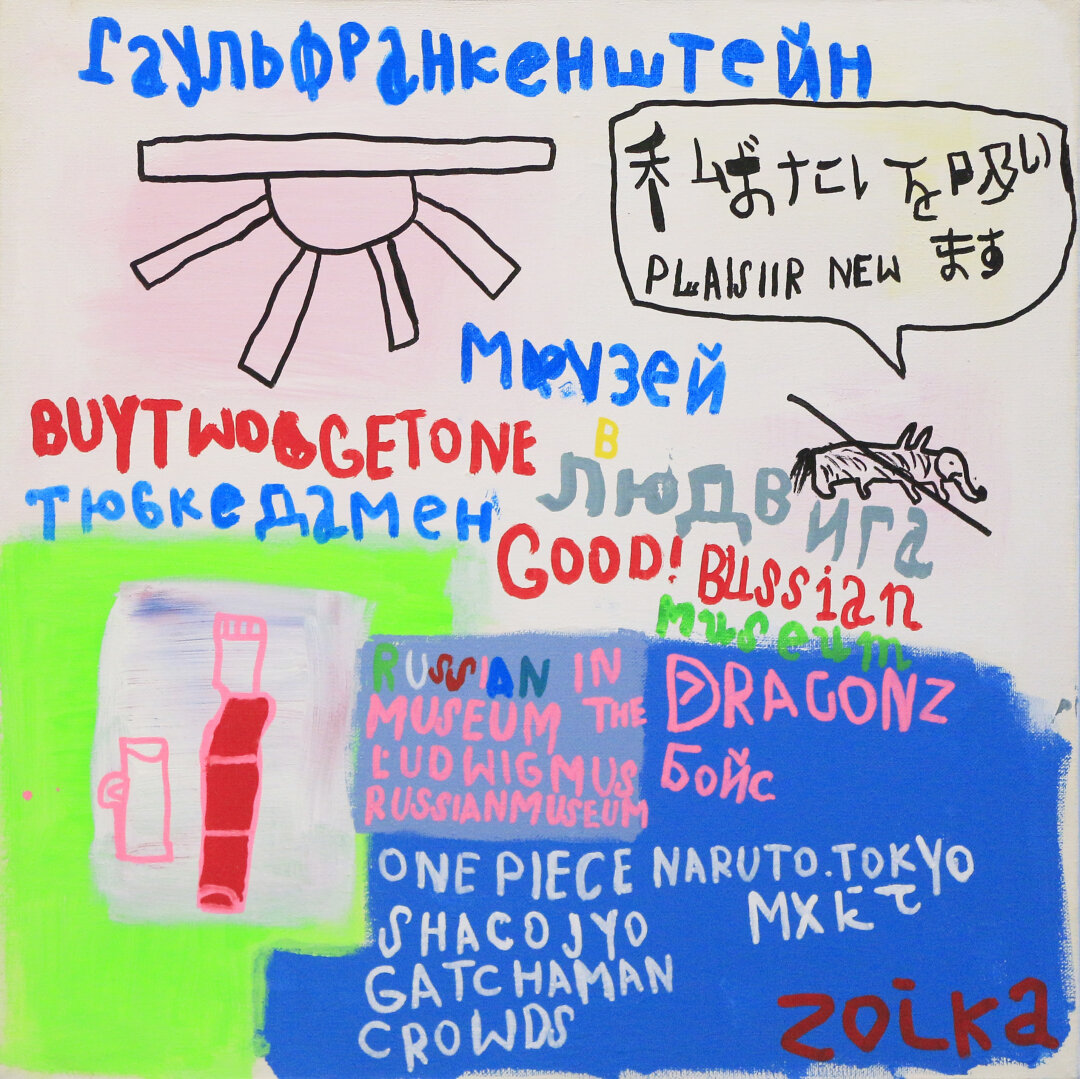 Гаульфранкенштейн
私ばたこ を吸い
PLAISIIR NEW ます
BUYTWO GETONE
В
тюбкедамен
людвига
GOOD! BUSSIAN
museum
RUSSIAN IN
MUSEUM THE
LUDWIGMUS
RUSSIANMUSEUM
DRAGONZ
Бойс
ONE PIECE NARUTO.TOKYO
MX
SHACOJYO
GATCHAMAN
CROWDS
zoika